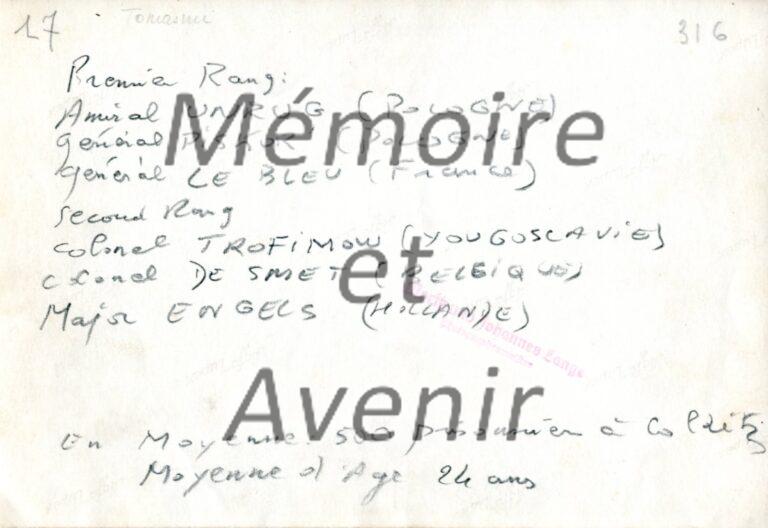 17 Tomasini 316
Premier Rang:
Amiral UNRUG (POLOGNE)
Général PISKOR (POLOGNE)
Général LE BLEU (France)
Second Rang
Colonel TROFIMOW (YOUGOSLAVIE)
Colonel DE SMET (BELGIQUE)
Major ENGELS (HOLLANDE)
Johannes Lange
En Moyenne 500 prisonnier à Colditz
Moyenne d'Age 24 ans
Mémoire
et
Avenir